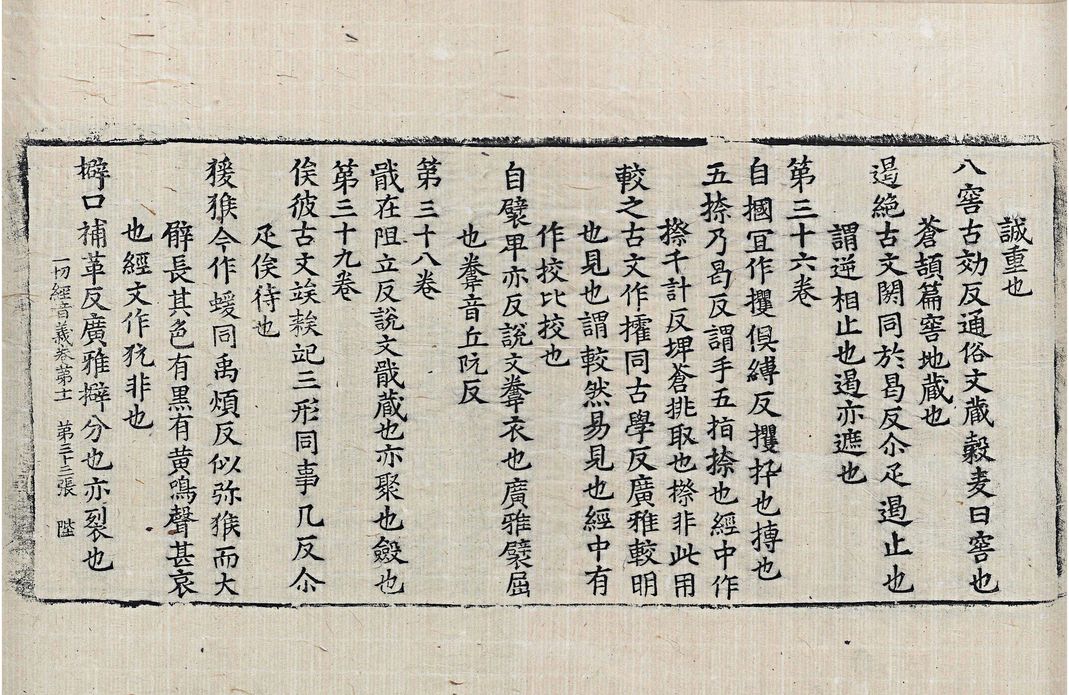 誠重也
八窖古効反通俗文蔵穀麦曰窖也
蒼頡篇窖地蔵也
遏絶古文閼同於曷反尒疋遏止也
謂逆相止也遏亦遮也
第三十六卷
自摑冝作攫俱縛反攫扞也搏也
五捺乃曷反謂手五指捺也經中作
擦千計反埤蒼挑取也擦非此用
較之古文作搉同古學反廣雅較明
也見也謂較然易見也經中有
作挍比挍也
自襞甲亦反說文韏衣也廣雅襞屈
也韏音丘阮反
第三十八卷
戢在阻立反說文戢蔵也亦聚也斂也
第三十九卷
俟彼古文竢䇃䇃三形同事几反尒
疋俟待也
猨猴今作蝯同禹煩反似弥猴而大
臂長其色有黒有黄鳴聲甚哀
也經文作犺非也
擗口補革反廣雅擗分也亦裂也
一切經音義卷苐士 第三十三張 陛